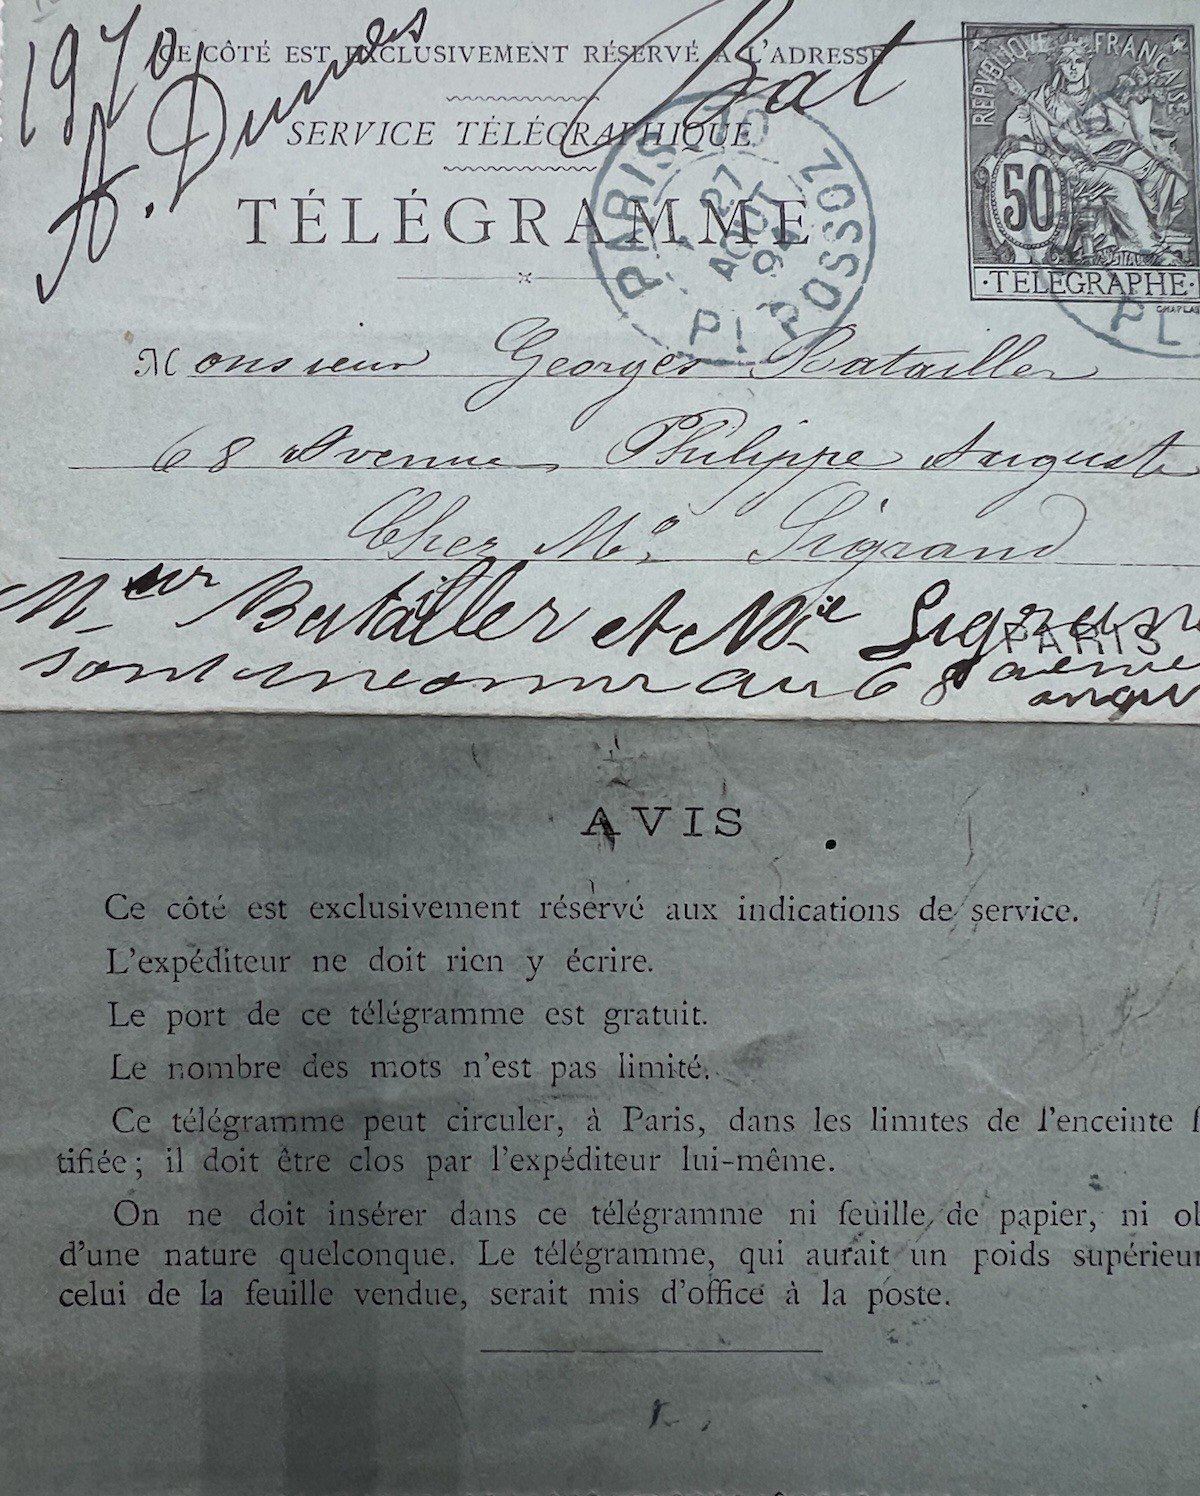 1970
A. Dumas
Bat
CE CÔTÉ EST EXCLUSIVEMENT RÉSERVÉ A L'ADRESSE
SERVICE TÉLÉGRAPHIQUE
TÉLÉGRAMME
REPUBLIQUE FRANCAISE
50
POSTAL
·TELEGRAPHE·
CHAPLAI
PARIS 20
27
AOUT
94
PL. POSSOZ
PL
Monsieur Georges Batailler
68 Avenue Philippe Auguste
Chez Mr. Sigrand
PARIS
Meur Batailler et Mie Sigran
sont inconnu au 68 avenue
AVIS
Ce côté est exclusivement réservé aux indications de service.
L'expéditeur ne doit rien y écrire.
Le port de ce télégramme est gratuit.
Le nombre des mots n'est pas limité.
Ce télégramme peut circuler, à Paris, dans les limites de l'enceinte f
tifiée; il doit être clos par l'expéditeur lui-même.
On ne doit insérer dans ce télégramme ni feuille de papier, ni ob
d'une nature quelconque. Le télégramme, qui aurait un poids supérieur
celui de la feuille vendue, serait mis d'office à la poste.